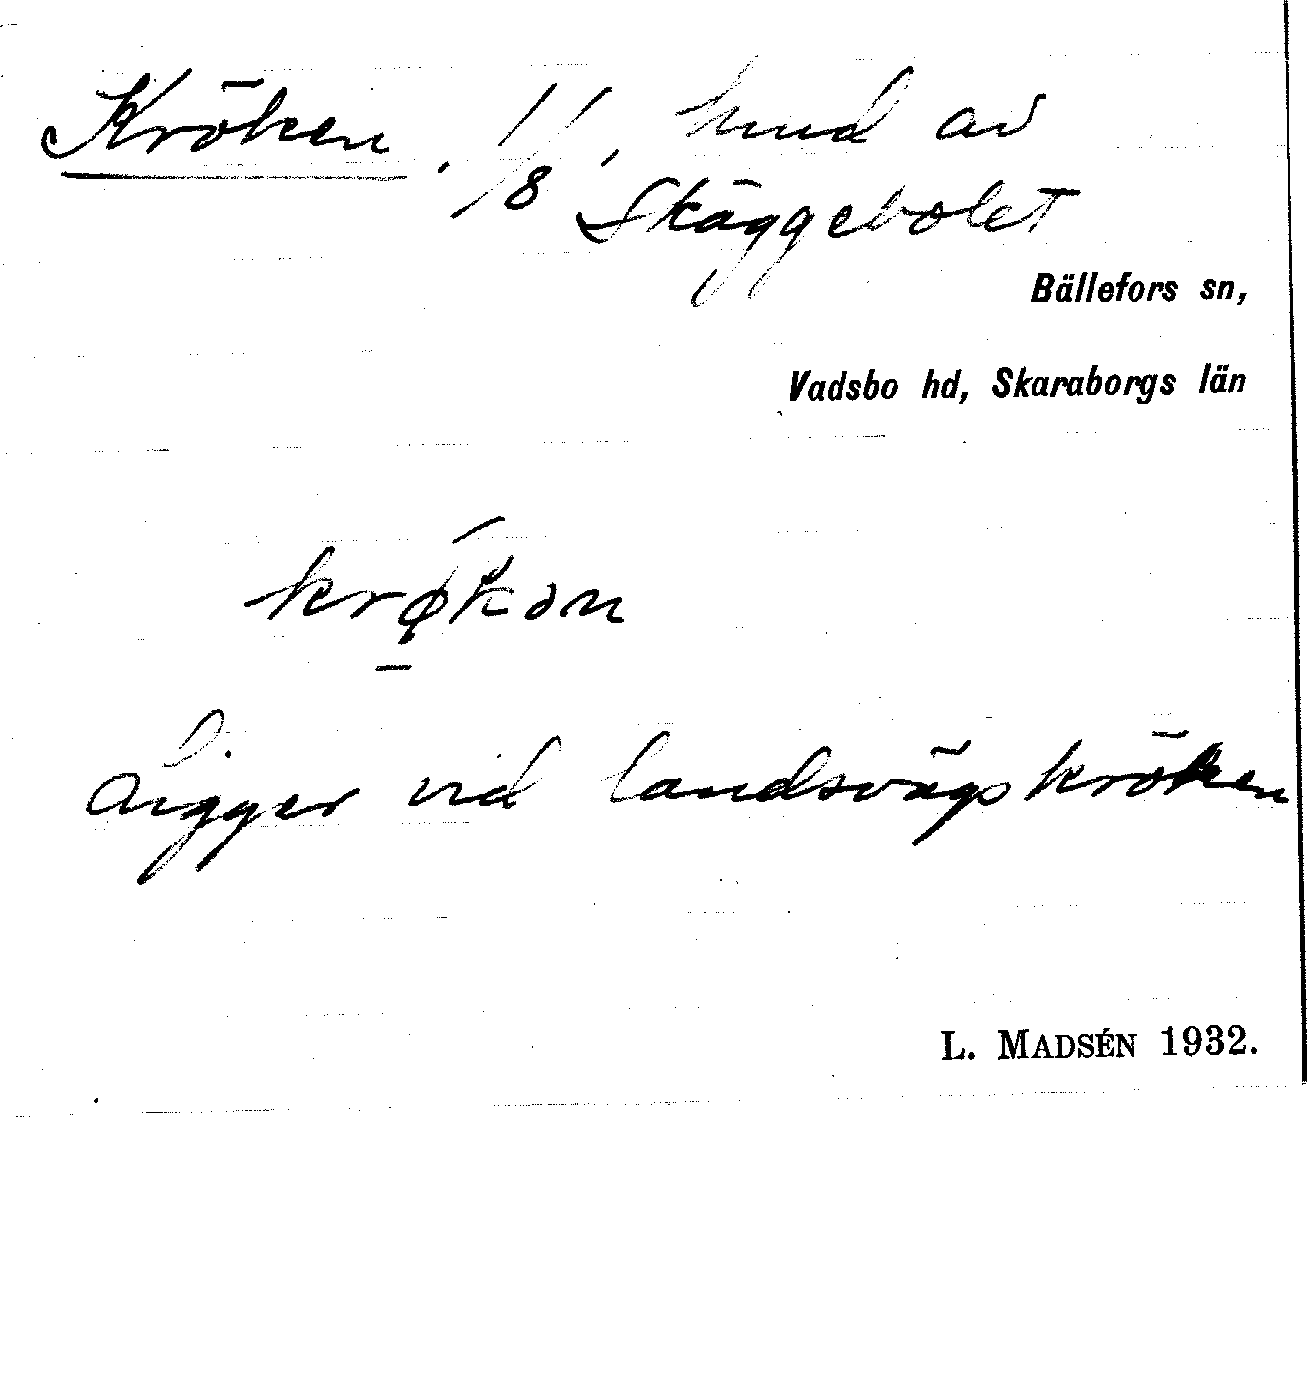 Kröken. 1/8, hmd av
Skäggebolet
Bällefors sn,
Vadsbo hd, Skaraborgs län
krǿ̨kən
Ligger vid landsvägskröken
L. MADSÉN 1932.